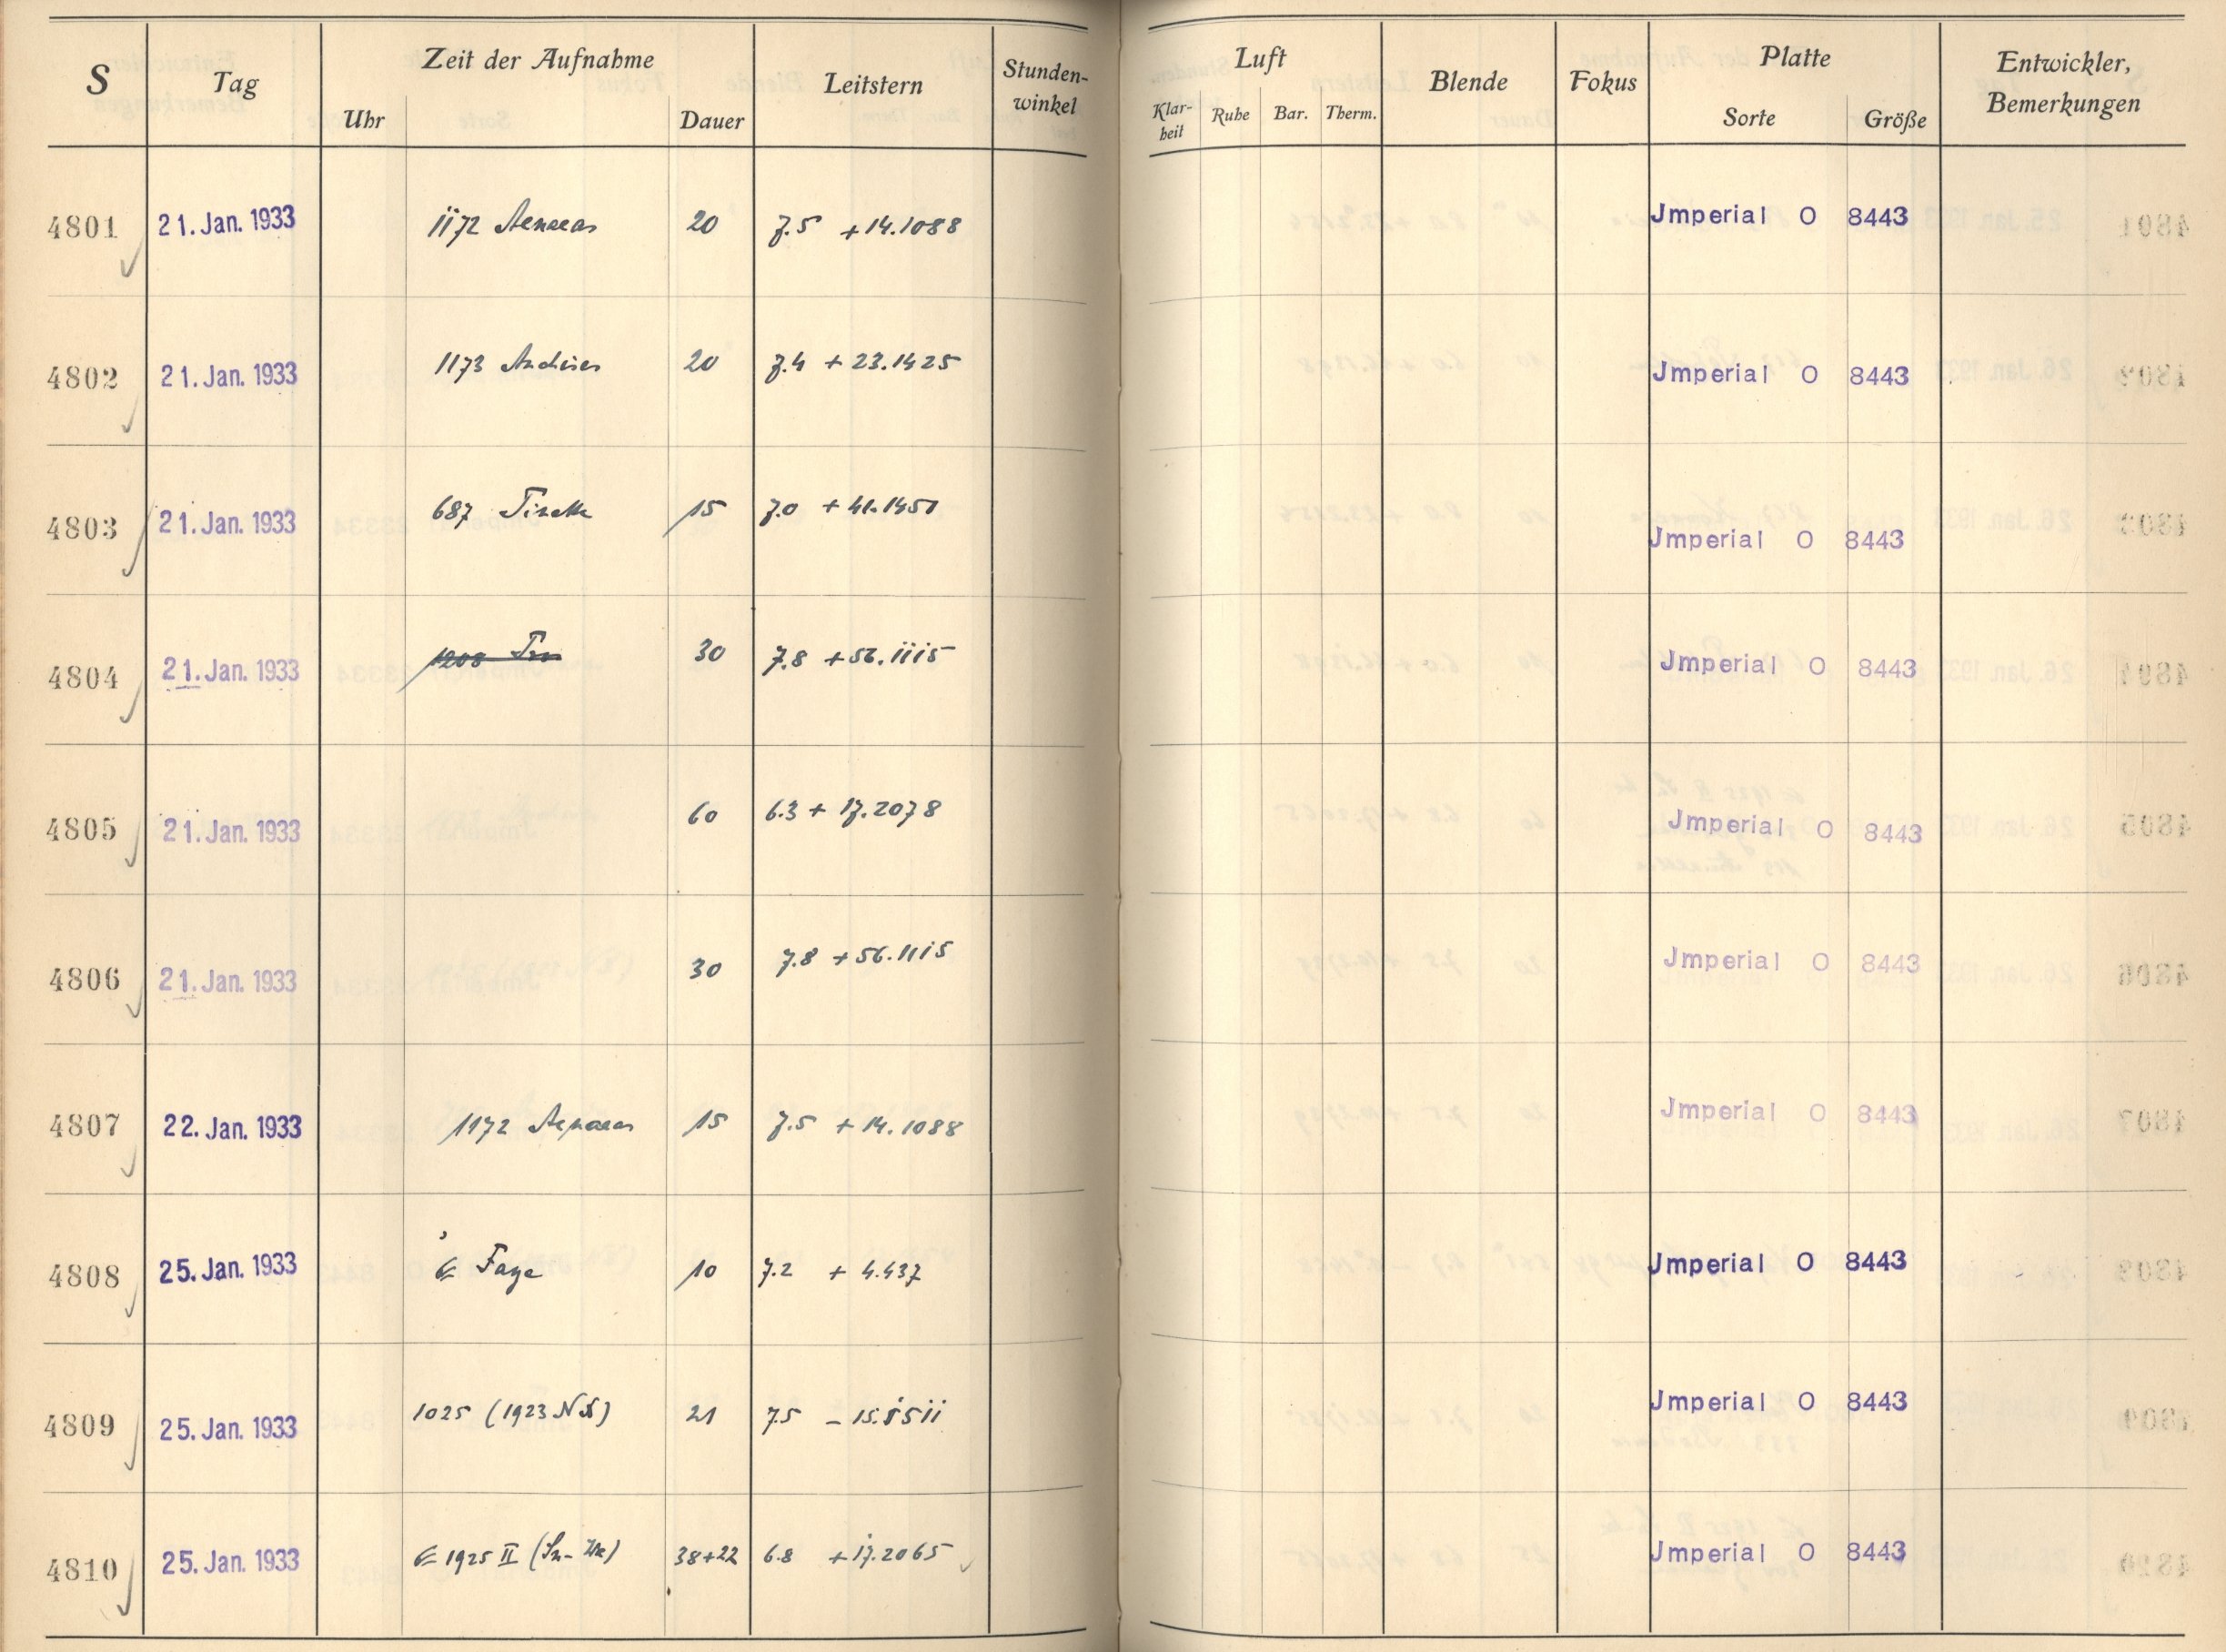 S Tag Zeit der Aufnahme Leitstern Stunden-winkel Luft Blende Fokus Platte Entwickler, Bemerkungen
Uhr Dauer Klar-heit Ruhe Bar. Therm. Sorte Größe
4801 21. Jan. 1933 1172 Aeneas 20 7.5 +14.1088 Jmperial O 8443
4802 21. Jan. 1933 1173 Anchises 20 7.4 + 23.1425 Jmperial O 8443
4803 21. Jan. 1933 687 Tinette 15 7.0 + 41.1451 Jmperial O 8443
4804 21. Jan. 1933 30 7.8 +56.1115 Jmperial O 8443
4805 21. Jan. 1933 60 6.3 + 17.2078 Jmperial O 8443
4806 21. Jan. 1933 30 7.8 +56.1115 Jmperial O 8443
4807 22. Jan. 1933 1172 Aeneas 15 7.5 + 14.1088 Jmperial O 8443
4808 25. Jan. 1933 Faye 10 7.2 + 4.437 Jmperial O 8443
4809 25. Jan. 1933 1025 (1923 NX) 21 7.5 - 15.5511 Jmperial O 8443
4810 25. Jan. 1933 1925 II 38+22 6.8 +17.2065 Jmperial O 8443